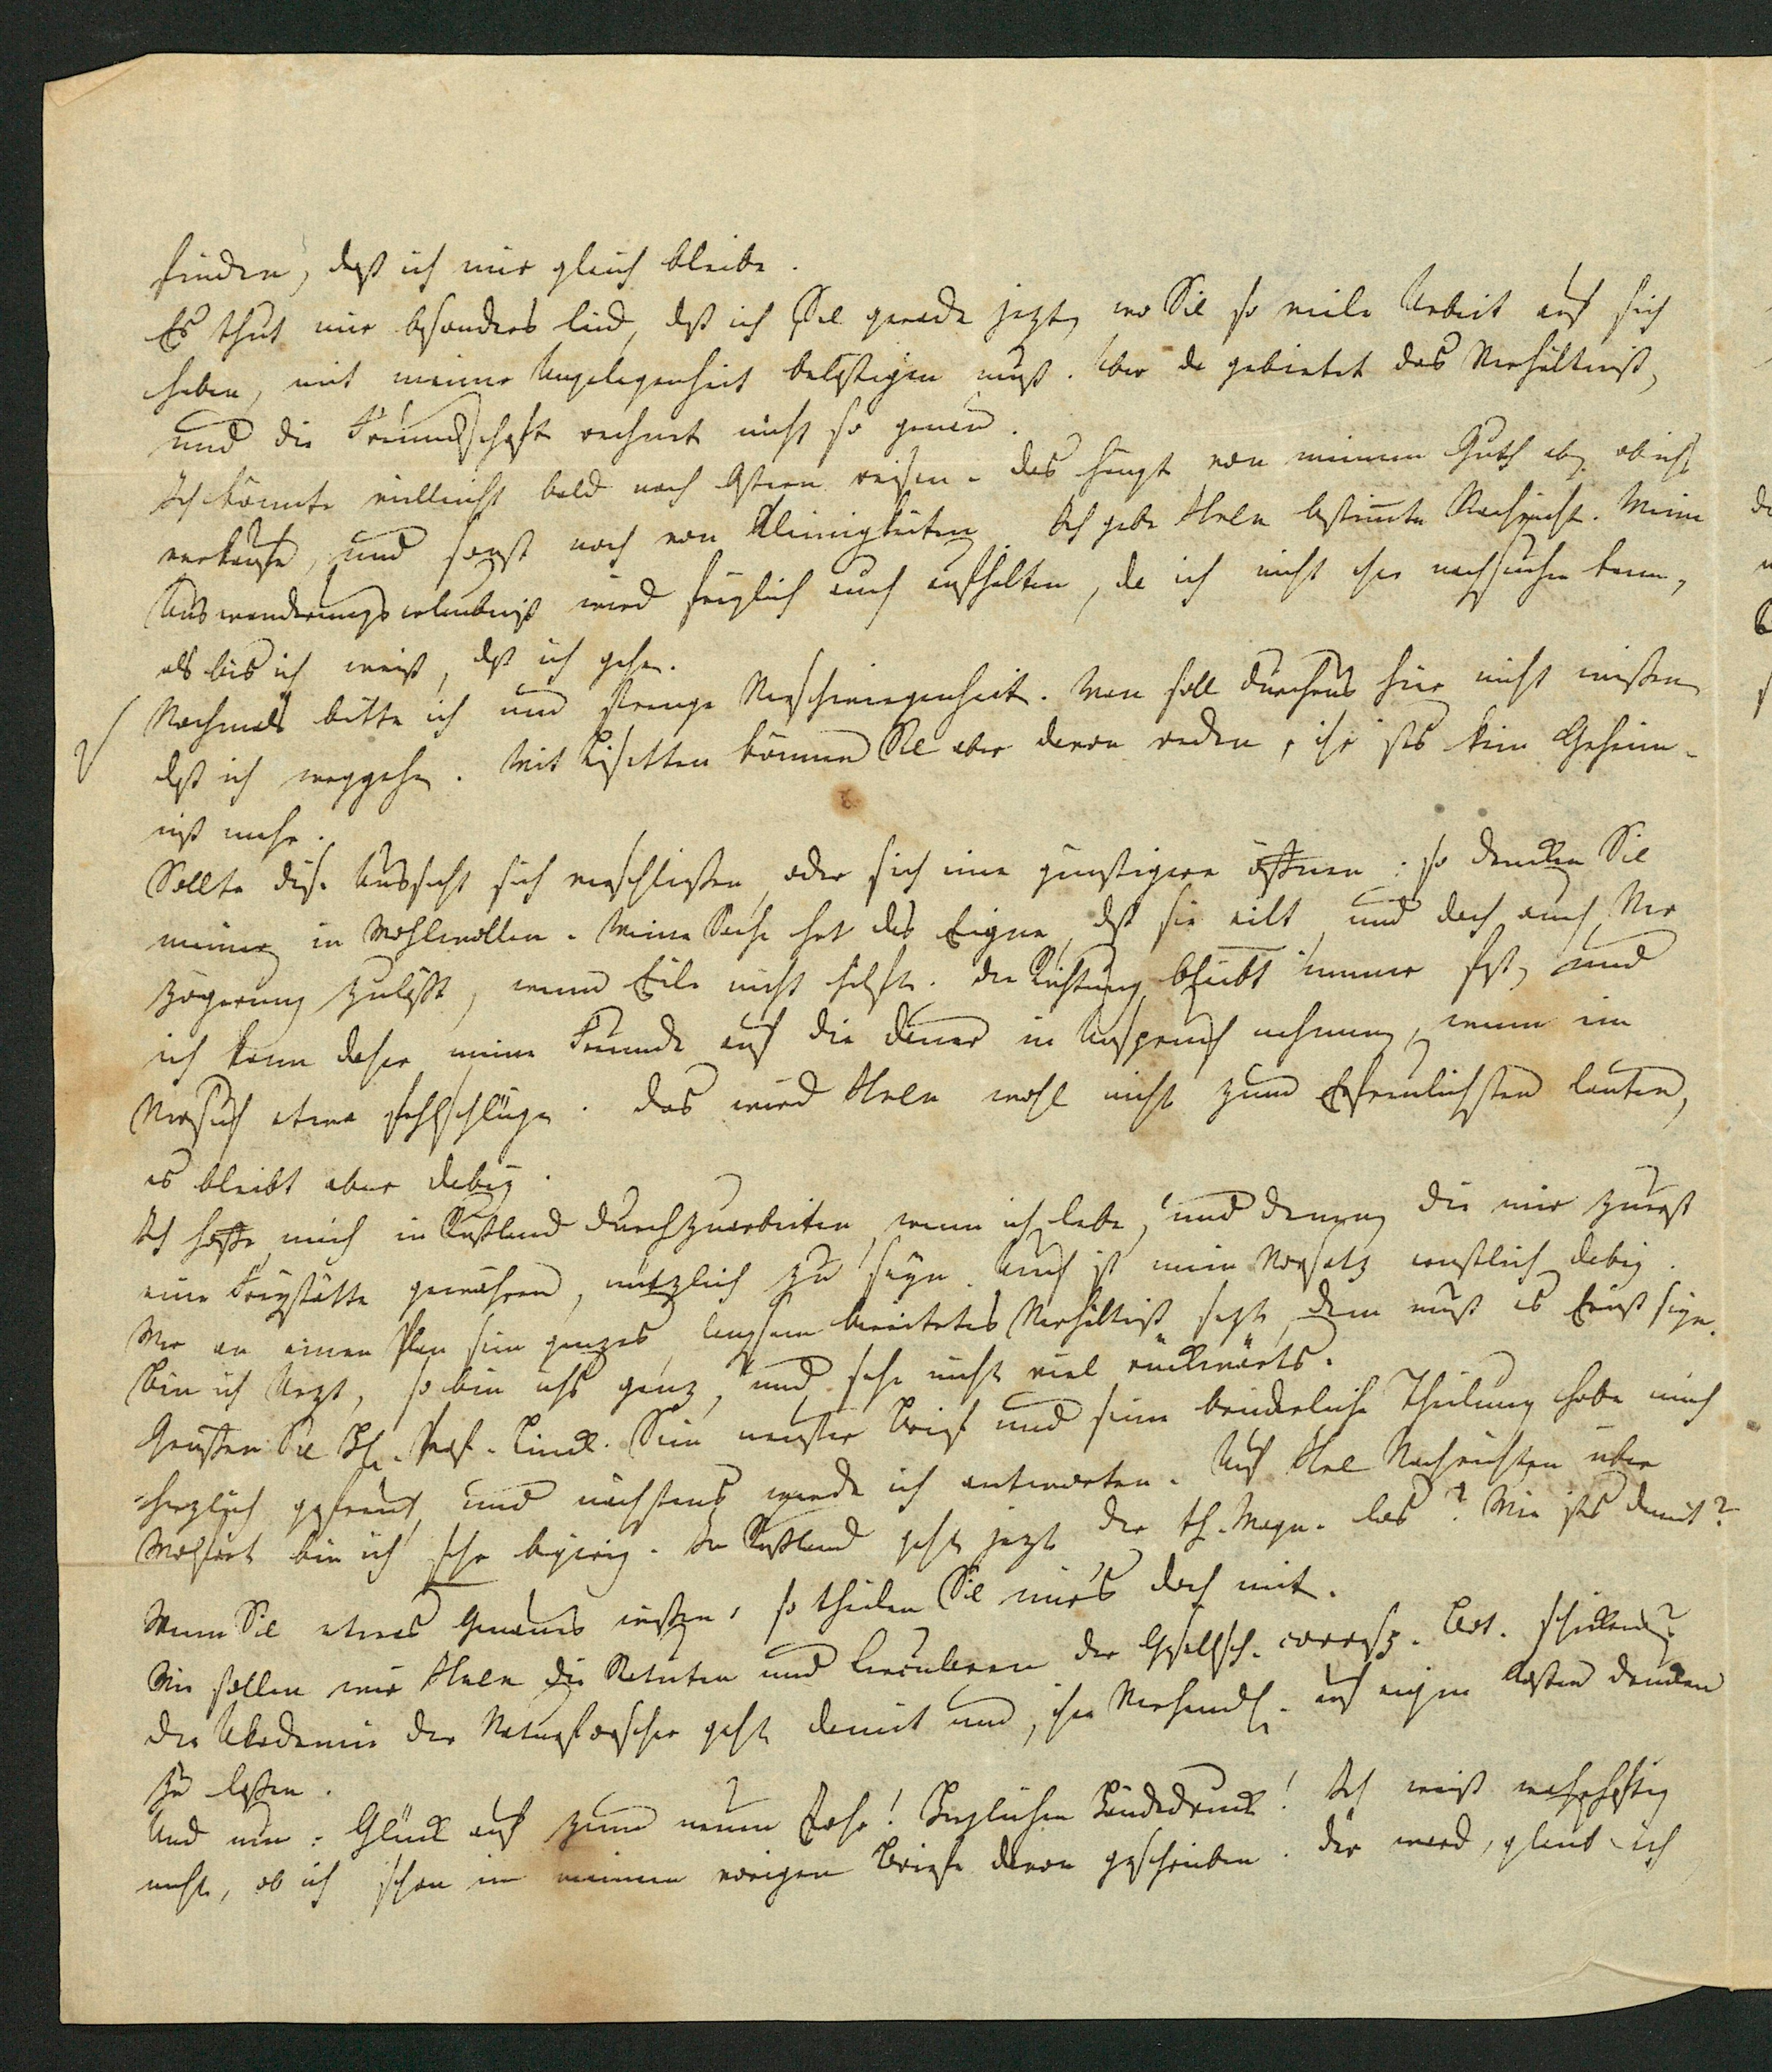 finden, daß ich mir gleich bleibe.
Es thut mir besonders leid, daß ich Sie gerade jezt, wo Sie so viele Arbeit auf sich
haben, mit meiner Angelegenheit belästigen muß. Aber da gebietet das Verhältniß,
und die Freundschaft rechnet nicht so genau.
Ich könnte vielleicht bald nach Ostern reisen. das hängt von meinem Guth ab, ob ichs
verkaufe, und sonst noch von Kleinigkeiten. Ich gebe Ihnen bestimte Nachricht. Meine
Auswanderungserlaubniß wird freylich auch aufhalten, da ich nicht eher nachsuchen kann,
als bis ich weiß, daß ich gehe.
Nochmals bitte ich um strenge Verschwiegenheit. Man soll durchaus hier nicht wißen
daß ich weggehe. Mit Lisetten können Sie aber davon reden, ihr ists kein Geheim-
niß mehr.
Sollte diese Aussicht sich verschließen, oder sich eine günstigere öffnen: so denken Sie
meiner in Wohlwollen. Meine Sache hat das Eigne, daß sie eilt und doch auch Ver
zögerung zuläßt, wenn Eile nicht hilft. die Richtung bleibt immer fest, und
ich kann daher meine Freunde auf die dauer in Anspruch nehmen, wenn ein
Versuch etwa fehlschlüge. das wird Ihnen wohl nicht zum Erfreulichsten lauten,
es bleibt aber dabey.
Ich hoffe mich in Rußland durchzuarbeiten, wenn ich lebe, und denen, die mir zuerst
eine Freystätte gewähren, nützlich zu seyn. Auch ist mein Vorsatz ernstlich dabey.
Wer an einen Plan sein ganzes, langsam bereitetes Verhältniß sezt, dem muß es Ernst seyn.
Bin ich Arzt, so bin ichs ganz, und sehe nicht viel rückwärts.
Grüßen Sie H. Prof. Linck. Sein neuster Brief und seine brüderliche Theilung habe mich
herzlich gefreut, und nächstens werde ich antworten. Auf Ihre Nachrichten über
bin ich sehr begierig. In Rußland geht jezt der th. Magn. los? Wie ists damit?
Wenn Sie etwas Genaues wißen, so theilen Sie mirs doch mit.
Wie sollen wir Ihnen die Statuten und Circularen der Gesellsch. corresp. Bot. schicken?
die Akademie der Naturforscher geht damit um, ihre Verhandl. auf eigne Kosten drucken
zu laßen.
Und nun: Glück auf zum neuen Jahr! Herzlichen Händedruck! Ich weiß wahrhaftig
nicht, ob ich schon in meinem vorigen Briefe davon geschrieben. der ward, glaub ich